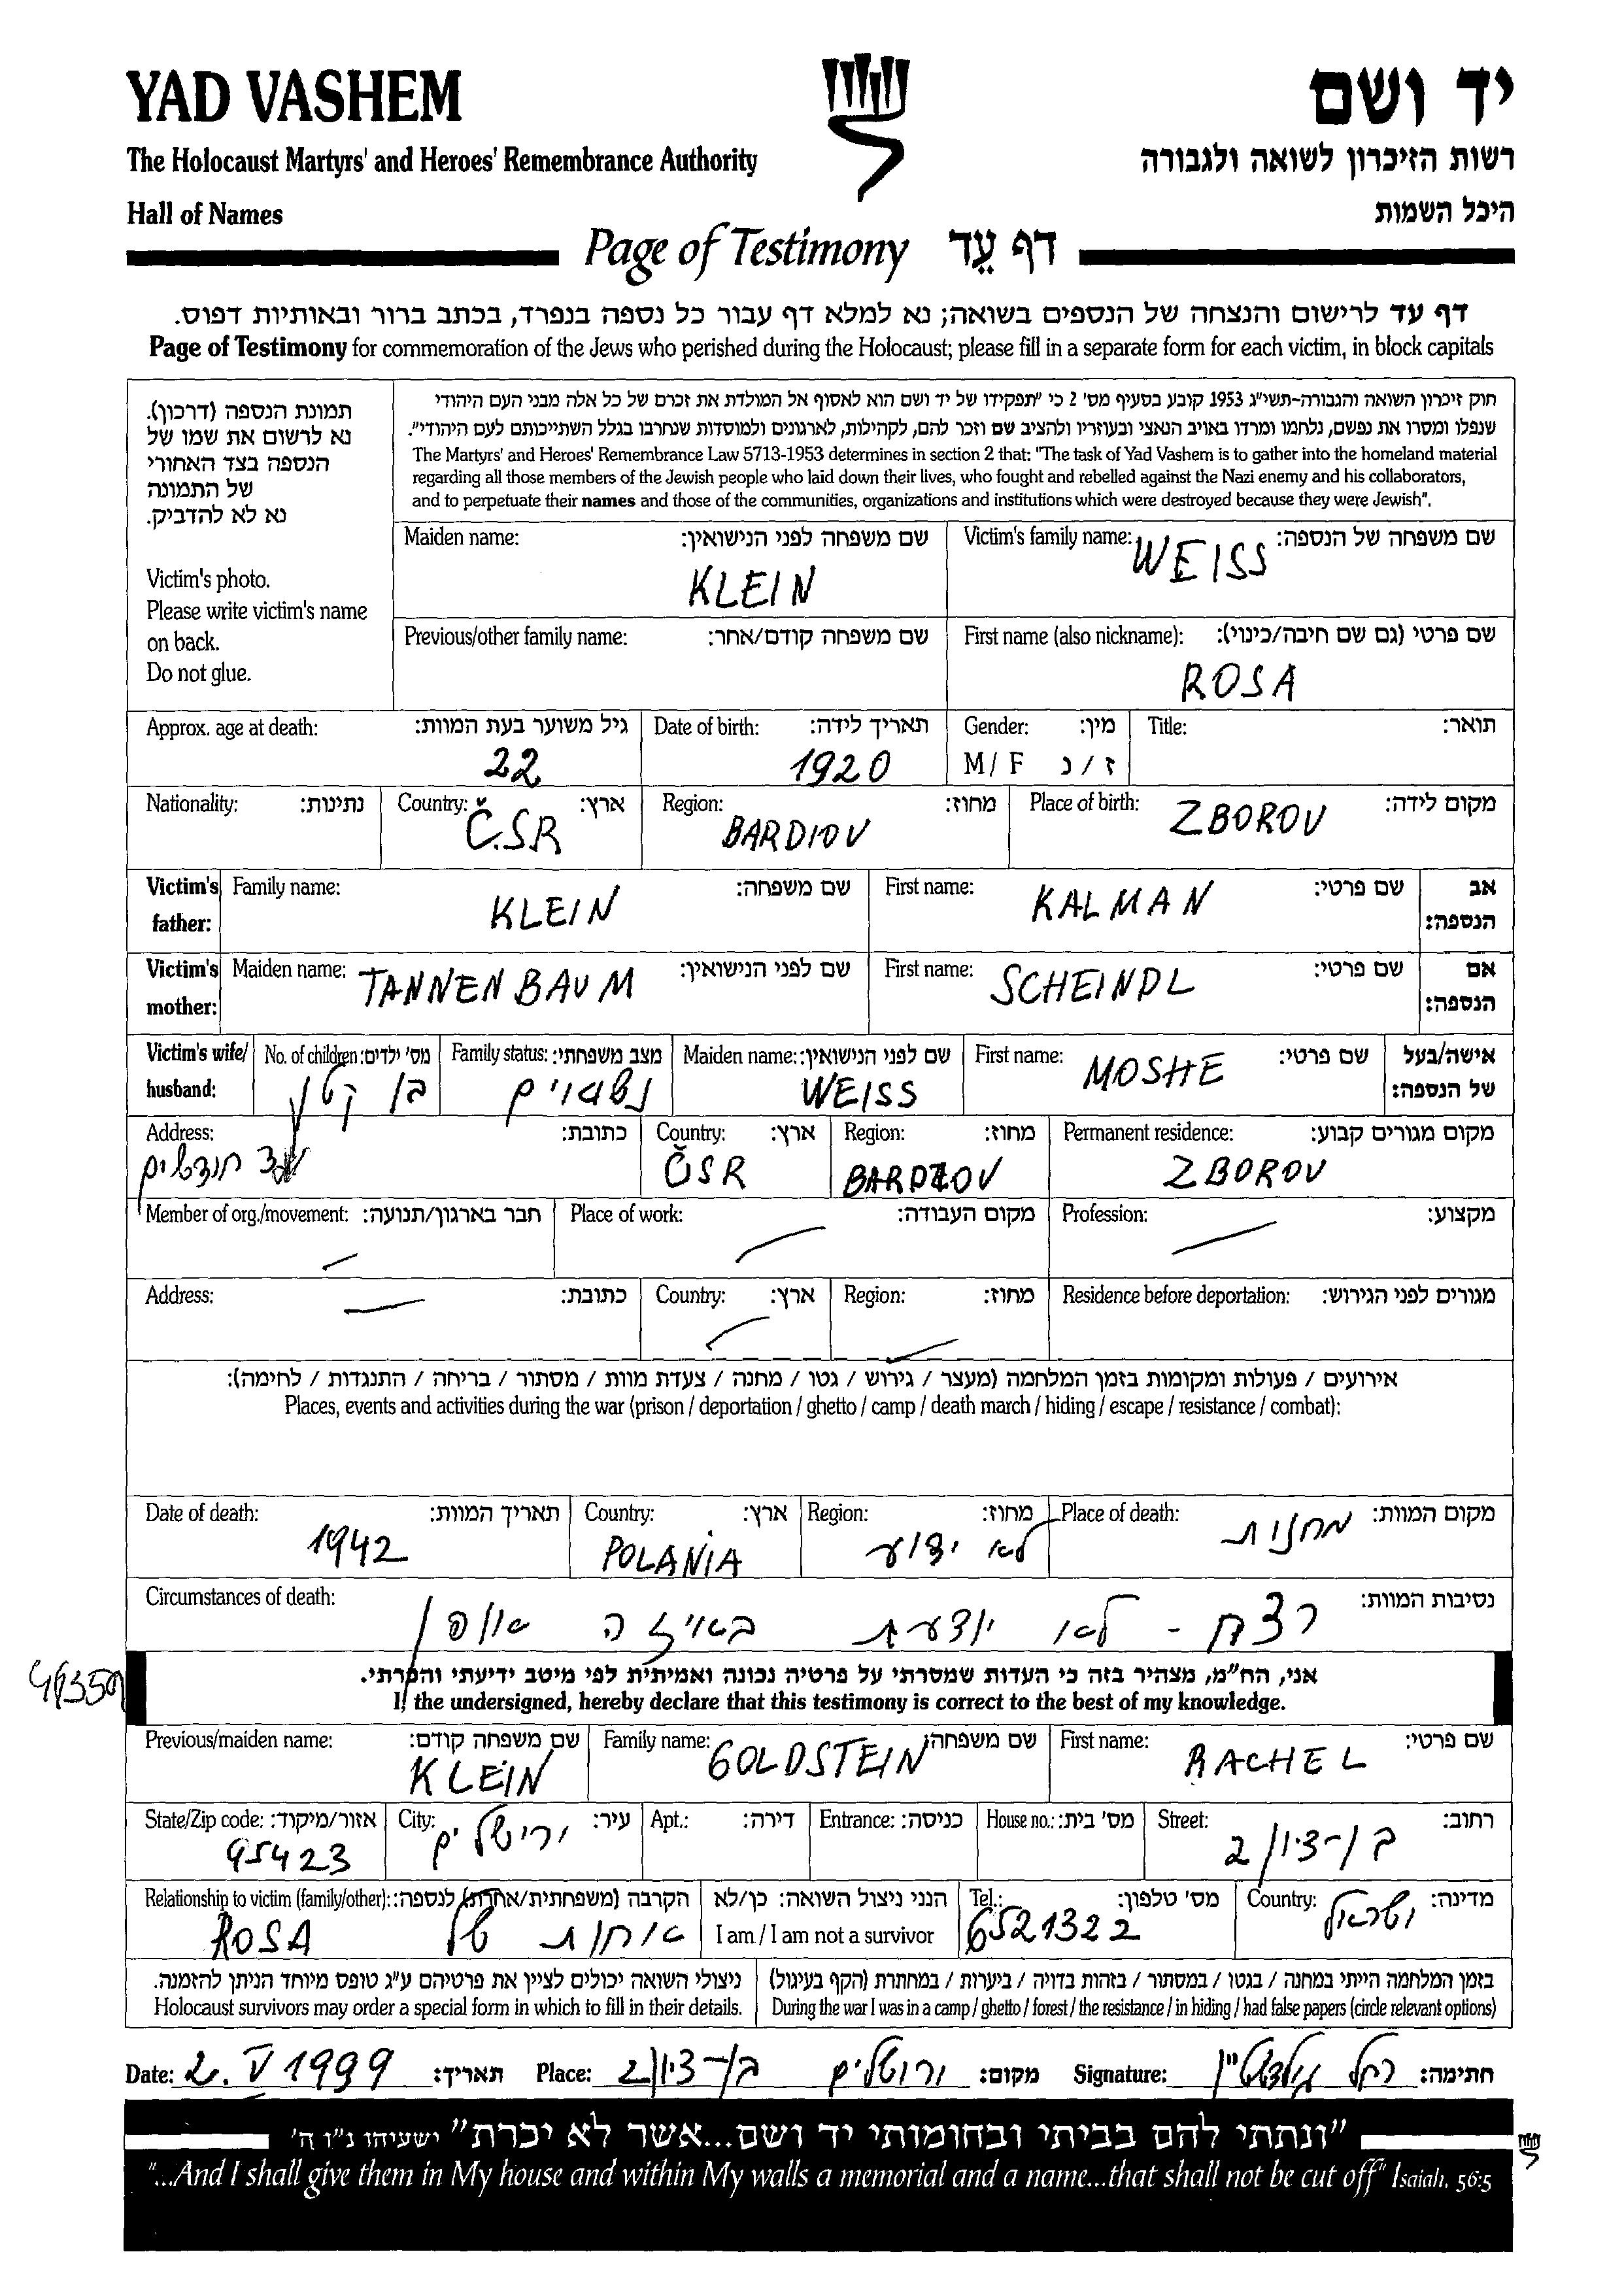 YAD VASHEM
יד ושם
The Holocaust Martyrs' and Heroes' Remembrance Authority
רשות הזיכרון לשואה ולגבורה
Hall of Names
היכל השמות
Page of Testimony דף עֵד
דף עד לרישום והנצחה של הנספים בשואה; נא למלא דף עבור כל נספה בנפרד, בכתב ברור ובאותיות דפוס.
Page of Testimony for commemoration of the Jews who perished during the Holocaust; please fill in a separate form for each victim, in block capitals
תמונת הנספה (דרכון).
נא לרשום את שמו של
הנספה בצד האחורי
של התמונה
נא לא להדביק.
Victim's photo.
Please write victim's name
on back.
Do not glue.
חוק זיכרון השואה והגבורה-תשי"ג 1953 קובע בסעיף מס' 2 כי "תפקידו של יד ושם הוא לאסוף אל המולדת את זכרם של כל אלה מבני העם היהודי
שנפלו ומסרו את נפשם, נלחמו ומרדו באויב הנאצי ובעוזריו ולהציב שם וזכר להם, לקהילות, לארגונים ולמוסדות שנחרבו בגלל השתייכותם לעם היהודי".
The Martyrs' and Heroes' Remembrance Law 5713-1953 determines in section 2 that: "The task of Yad Vashem is to gather into the homeland material
regarding all those members of the Jewish people who laid down their lives, who fought and rebelled against the Nazi enemy and his collaborators,
and to perpetuate their names and those of the communities, organizations and institutions which were destroyed because they were Jewish".
Maiden name: שם משפחה לפני הנישואין: Victim's family name: שם משפחה של הנספה:
KLEIN WEISS
Previous/other family name: שם משפחה קודם/אחר: First name (also nickname): שם פרטי (גם שם חיבה/כינוי):
ROSA
Approx. age at death: גיל משוער בעת המוות: Date of birth: תאריך לידה: Gender: מין: Title: תואר:
22 1920 M / F ז / נ
Nationality: נתינות: Country: ארץ: Region: מחוז: Place of birth: מקום לידה:
Č.SR BARDIOV ZBOROV
Victim's father: Family name: שם משפחה: First name: שם פרטי: אב הנספה:
KLEIN KALMAN
Victim's mother: Maiden name: שם לפני הנישואין: First name: שם פרטי: אם הנספה:
TANNENBAUM SCHEINDL
Victim's wife/ husband: No. of children: מס' ילדים: Family status: מצב משפחתי: Maiden name: שם לפני הנישואין: First name: שם פרטי: אישה/בעל של הנספה:
בן קטן נשואים WEISS MOSHE
Address: כתובת: Country: ארץ: Region: מחוז: Permanent residence: מקום מגורים קבוע:
חודשים ČSR BARDIOV ZBOROV
Member of org./movement: חבר בארגון/תנועה: Place of work: מקום העבודה: Profession: מקצוע:
Address: כתובת: Country: ארץ: Region: מחוז: Residence before deportation: מגורים לפני הגירוש:
אירועים / פעולות ומקומות בזמן המלחמה (מעצר / גירוש / גטו / מחנה / צעדת מוות / מסתור / בריחה / התנגדות / לחימה):
Places, events and activities during the war (prison / deportation / ghetto / camp / death march / hiding / escape / resistance / combat):
Date of death: תאריך המוות: Country: ארץ: Region: מחוז: Place of death: מקום המוות:
1942 POLANIA לא ידוע מחנות
Circumstances of death: נסיבות המוות:
רצח - לא יודעת באיזה אופן
אני, הח"מ, מצהיר בזה כי העדות שמסרתי על פרטיה נכונה ואמיתית לפי מיטב ידיעתי והכרתי.
I, the undersigned, hereby declare that this testimony is correct to the best of my knowledge.
Previous/maiden name: שם משפחה קודם: Family name: שם משפחה: First name: שם פרטי:
KLEIN GOLDSTEIN RACHEL
State/Zip code: אזור/מיקוד: City: עיר: Apt.: דירה: Entrance: כניסה: House no.: מס' בית: Street: רחוב:
95423 ירושלים בן-ציון 2
Relationship to victim (family/other): הקרבה (משפחתית/אחרת) לנספה: הנני ניצול השואה: כן/לא Tel.: מס' טלפון: Country: מדינה:
אחות של ROSA I am / I am not a survivor 6521322 ישראל
ניצולי השואה יכולים לציין את פרטיהם ע"ג טופס מיוחד הניתן להזמנה.
Holocaust survivors may order a special form in which to fill in their details.
בזמן המלחמה הייתי במחנה / בגטו / במסתור / בזהות בדויה / ביערות / במחתרת (הקף בעיגול)
During the war I was in a camp / ghetto / forest / the resistance / in hiding / had false papers (circle relevant options)
Date: 2. V 1999 תאריך: Place: ירושלים בן-ציון 2 מקום: Signature: רחל גולדשטיין חתימה:
"ונתתי להם בביתי ובחומותי יד ושם...אשר לא יכרת" ישעיהו נ"ו ה'
"...And I shall give them in My house and within My walls a memorial and a name...that shall not be cut off" Isaiah, 56:5